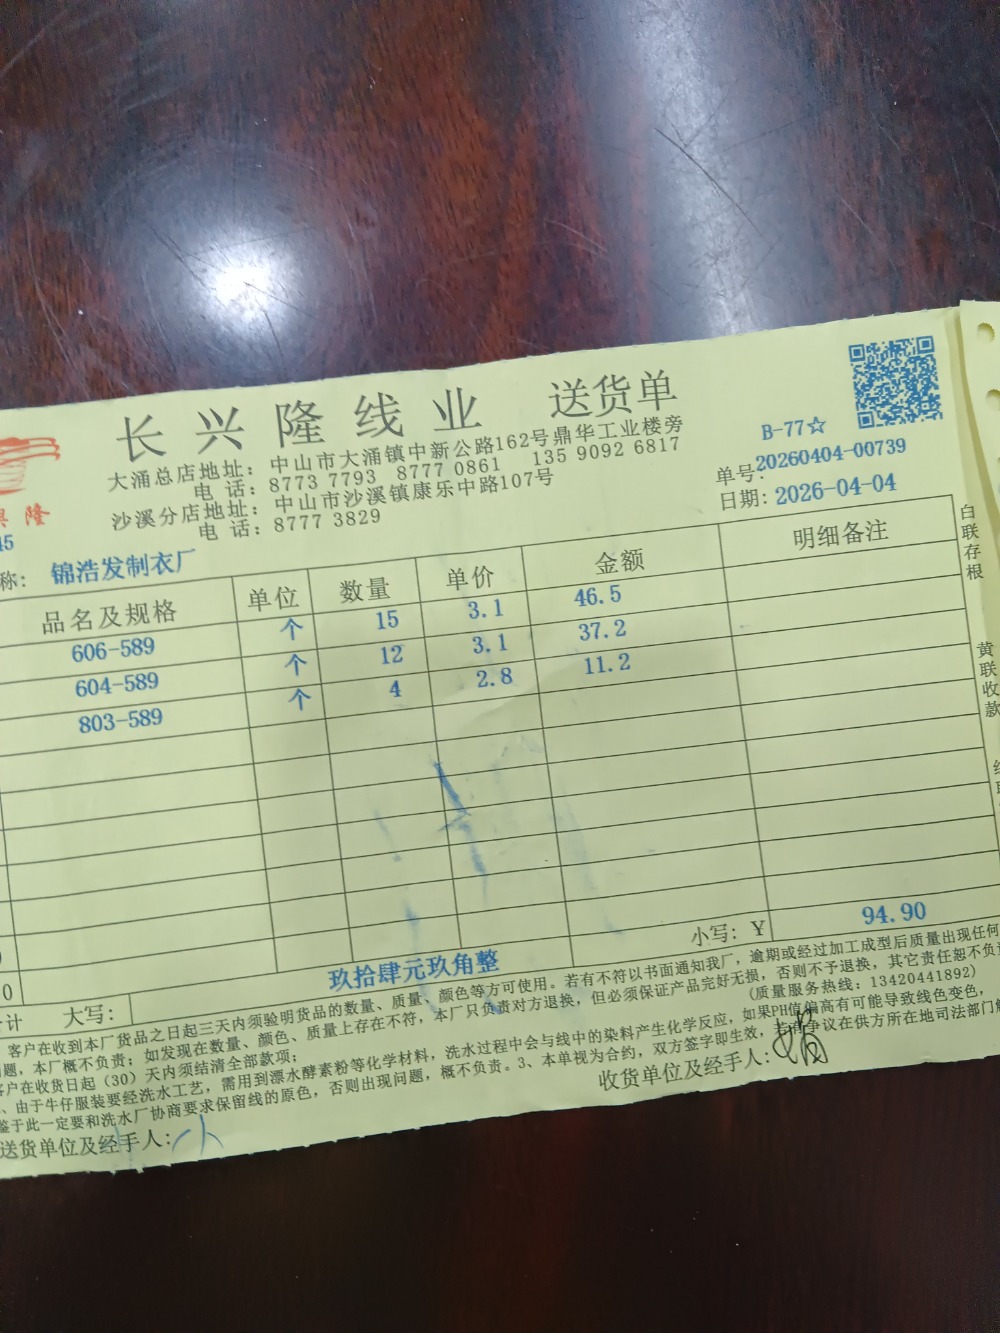 长兴隆线业 送货单
大涌总店地址：中山市大涌镇中新公路162号鼎华工业楼旁
电 话：8773 7793 8777 0861 135 9092 6817
沙溪分店地址：中山市沙溪镇康乐中路107号
电 话：8777 3829
B-77☆
单号:20260404-00739
日期: 2026-04-04
隆
45
称: 锦浩发制衣厂
品名及规格 单位 数量 单价 金额 明细备注
606-589 个 15 3.1 46.5
604-589 个 12 3.1 37.2
803-589 个 4 2.8 11.2
白联存根
黄联收款
0
计 大写: 玖拾肆元玖角整 小写: ¥ 94.90
客户在收到本厂货品之日起三天内须验明货品的数量、质量、颜色等方可使用。若有不符以书面通知我厂，逾期或经过加工成型后质量出现任何
题，本厂概不负责；如发现在数量、颜色、质量上存在不符，本厂只负责对方退换，但必须保证产品完好无损，否则不予退换，其它责任恕不负
客户在收货日起（30）天内须结清全部款项； (质量服务热线：13420441892)
、由于牛仔服装要经洗水工艺，需用到漂水酵素粉等化学材料，洗水过程中会与线中的染料产生化学反应，如果PH值偏高有可能导致线色变色，
鉴于此一定要和洗水厂协商要求保留线的原色，否则出现问题，概不负责。3、本单视为合约，双方签字即生效，若有争议在供方所在地司法部门
送货单位及经手人: 收货单位及经手人: